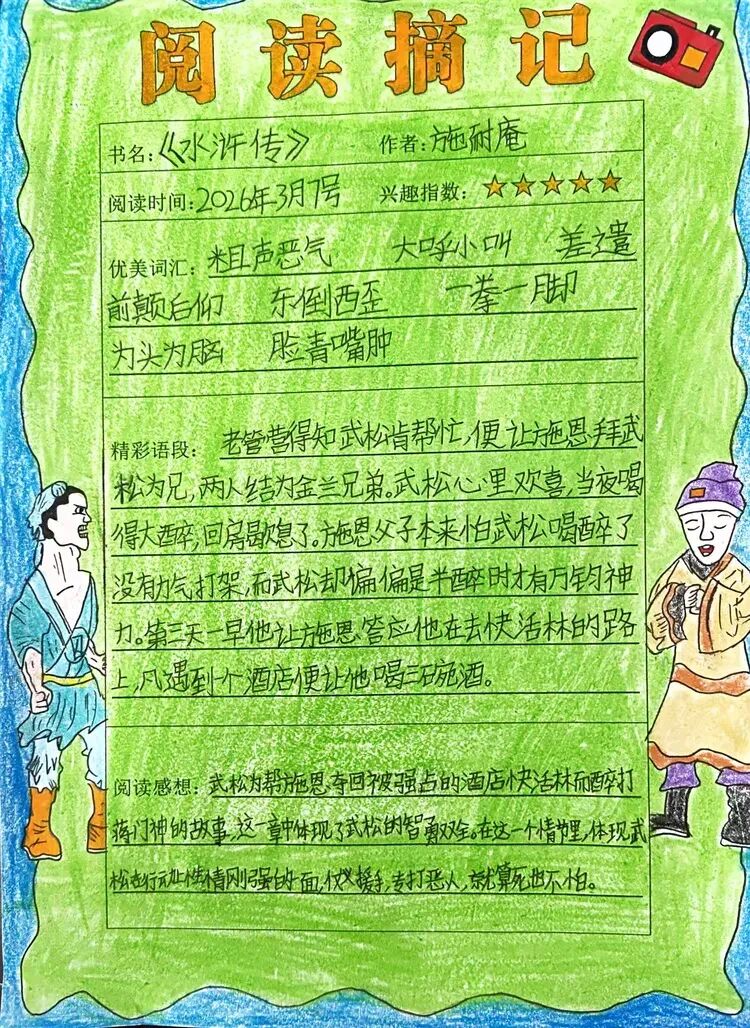 阅读摘记
书名:《水浒传》 作者:施耐庵
阅读时间:2026年3月7号 兴趣指数:☆☆☆☆☆
优美词汇:粗声恶气 大呼小叫 差遣
前颠后仰 东倒西歪 一拳一脚
为头为脑 脸青嘴肿
精彩语段:老管营得知武松肯帮忙,便让施恩拜武
松为兄,两人结为金兰兄弟。武松心里欢喜,当夜喝
得大醉,回房歇息了。施恩父子本来怕武松喝醉了
没有力气打架,而武松却偏偏是半醉时才有万钧神
力。第三天一早他让施恩答应他在去快活林的路
上,凡遇到一个酒店便让他喝三碗酒。
阅读感想:武松为帮施恩夺回被强占的酒店快活林而醉打
蒋门神的故事,这一章中体现了武松的智勇双全。在这一个情节里,体现武
松在行元止性情刚强的一面,仗义援手,专打恶人,就算死也不怕。